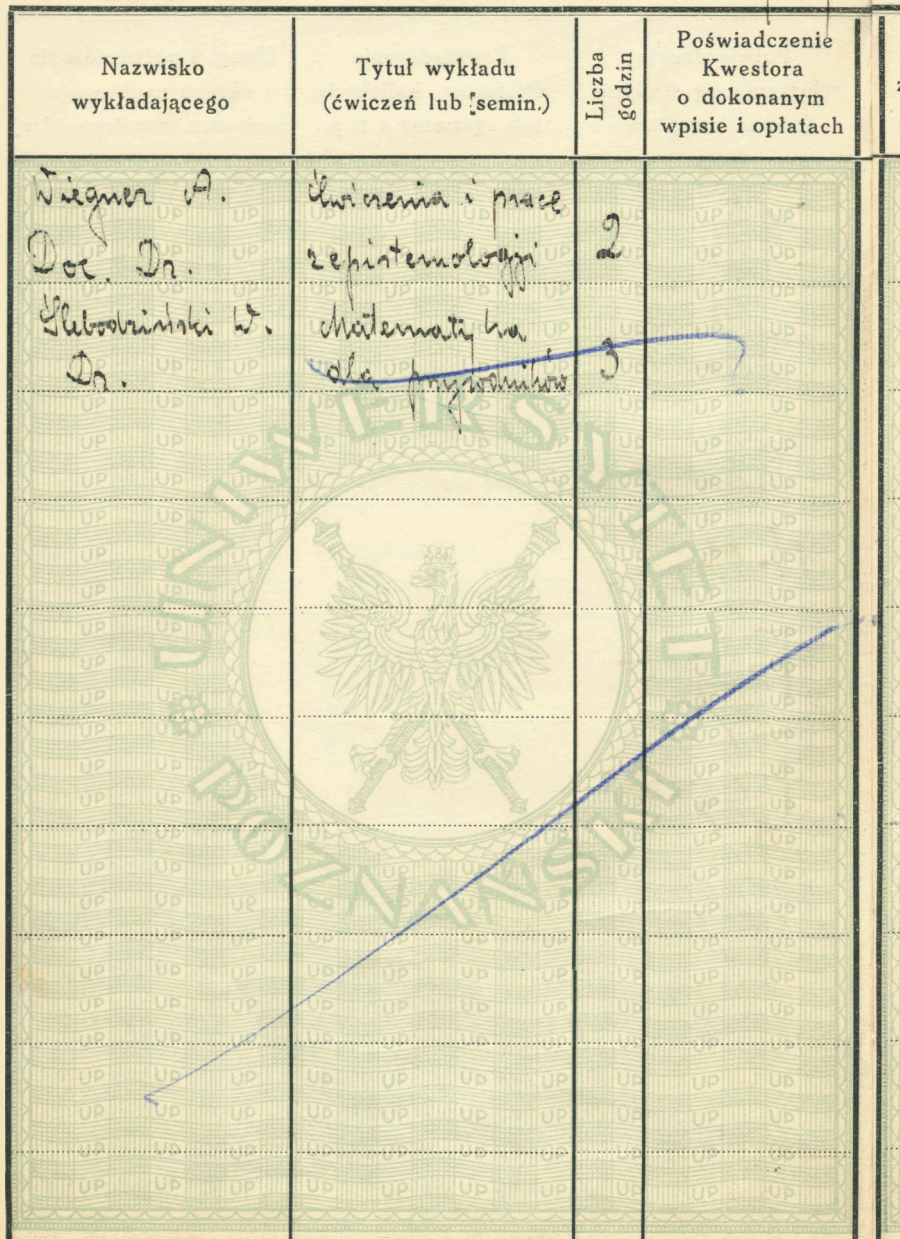 Nazwisko
wykładającego
Tytuł wykładu
(ćwiczeń lub semin.)
Liczba
godzin
Poświadczenie
Kwestora
o dokonanym
wpisie i opłatach
Wiegner A.
Doc. Dr.
Ćwiczenia i prace
z epistemologji
2
Ślebodziński W.
Dr.
Matematyka
dla przyrodników
3
UNIWERSYTET
POZNAŃSKI